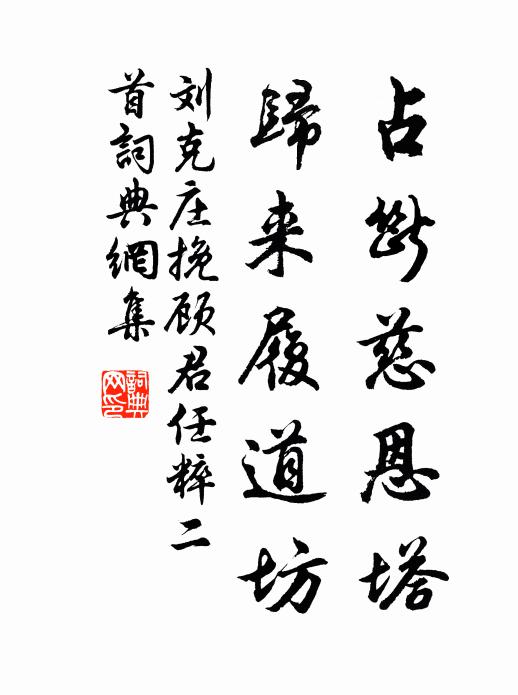 占断慈恩塔
歸来履道坊
刘克庄挽顾君任粹二
首詞典網集
詞典
网印